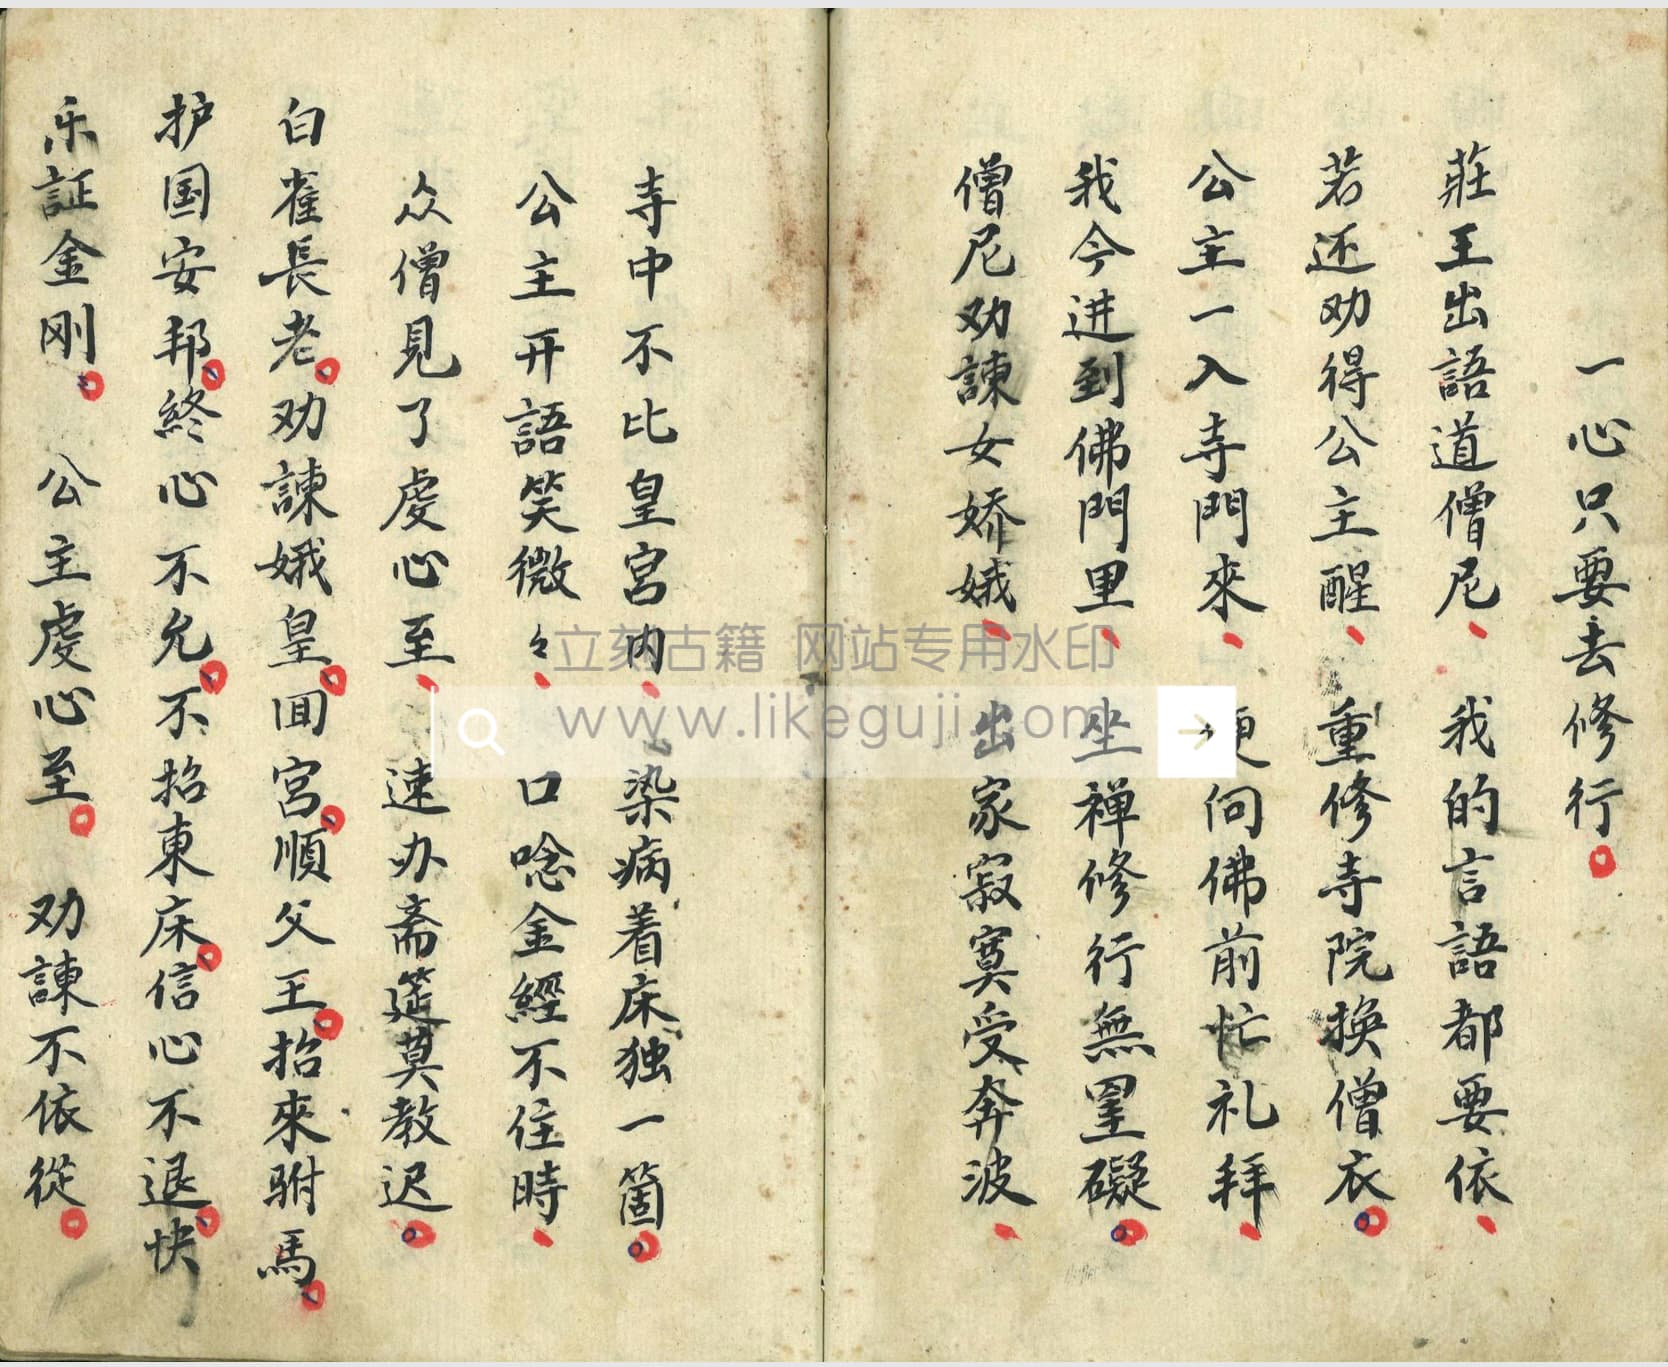 一心只要去修行
莊王出語道僧尼 我的言語都要依
若还劝得公主醒 重修寺院换僧衣
公主一入寺門來 向佛前忙礼拜
我今进到佛門里 坐禅修行無罣礙
僧尼劝諫女娇娥 出家寂寞受奔波
寺中不比皇宫内 染病着床独一箇
公主开語笑微々 口唸金經不住時
众僧見了虔心至 速办斋筵莫教迟
白雀長老劝諫娥皇囬宫順父王招來駙馬
护国安邦終心不允不招東床信心不退快
乐証金刚 公主虔心至 劝諫不依從
立刻古籍 网站专用水印
www.likeguji.com